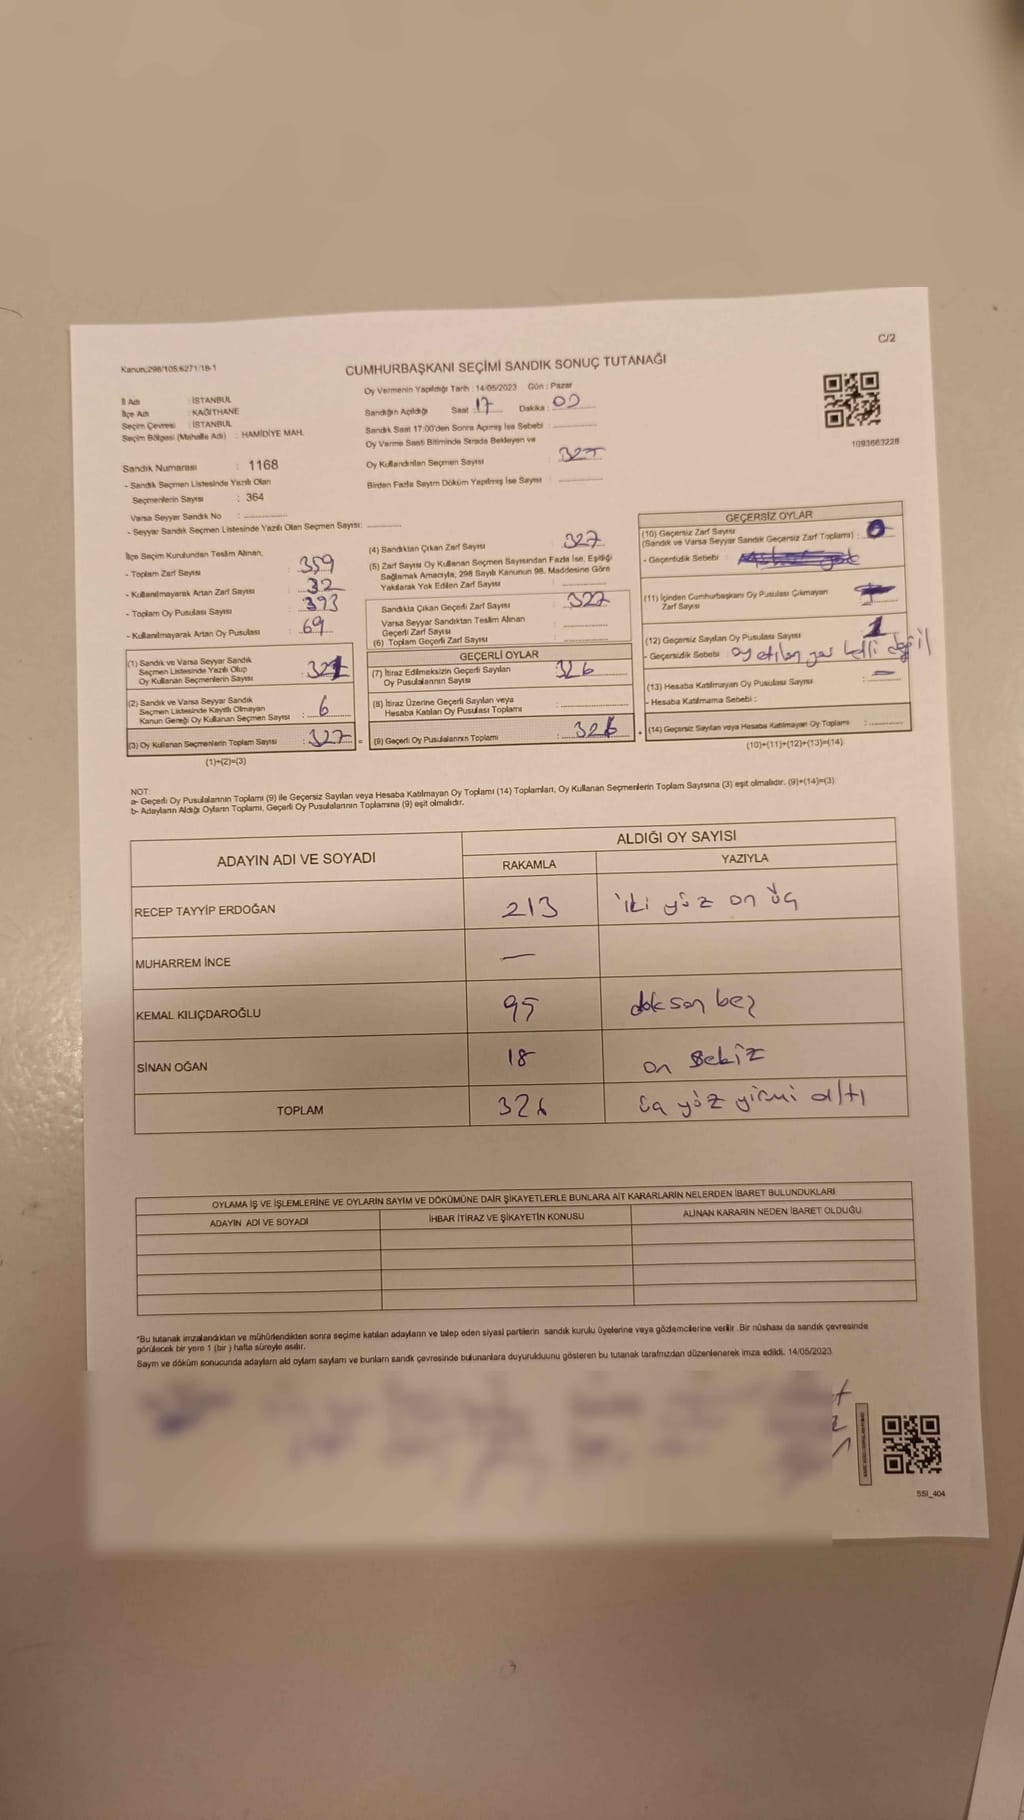 C/2
Kanun:298/105:6271/18-1
CUMHURBAŞKANI SEÇİMİ SANDIK SONUÇ TUTANAĞI
İl Adı : İSTANBUL
İlçe Adı : KAĞITHANE
Seçim Çevresi : İSTANBUL
Seçim Bölgesi (Mahalle Adı) : HAMİDİYE MAH.
Sandık Numarası : 1168
- Sandık Seçmen Listesinde Yazılı Olan
Seçmenlerin Sayısı : 364
Varsa Seyyar Sandık No :
- Seyyar Sandık Seçmen Listesinde Yazılı Olan Seçmen Sayısı:
Oy Vermenin Yapıldığı Tarih : 14/05/2023 Gün : Pazar
Sandığın Açıldığı Saat : 17 Dakika : 00
Sandık Saat 17:00'den Sonra Açımış İse Sebebi :
Oy Verme Saati Bitiminde Sırada Bekleyen ve
Oy Kullandırılan Seçmen Sayısı :
Birden Fazla Sayım Döküm Yapılmış İse Sayısı :
1093663228
İlçe Seçim Kurulundan Teslim Alınan,
- Toplam Zarf Sayısı : 359
- Kullanılmayarak Artan Zarf Sayısı : 32
- Toplam Oy Pusulası Sayısı : 393
- Kullanılmayarak Artan Oy Pusulası : 69
(1) Sandık ve Varsa Seyyar Sandık
Seçmen Listesinde Yazılı Olup
Oy Kullanan Seçmenlerin Sayısı :
(2) Sandık ve Varsa Seyyar Sandık
Seçmen Listesinde Kayıtlı Olmayan
Kanun Gereği Oy Kullanan Seçmen Sayısı : 6
(3) Oy Kullanan Seçmenlerin Toplam Sayısı : 327 =
(1)+(2)=(3)
(4) Sandıktan Çıkan Zarf Sayısı : 327
(5) Zarf Sayısı Oy Kullanan Seçmen Sayısından Fazla İse, Eşitliği
Sağlamak Amacıyla; 298 Sayılı Kanunun 98. Maddesine Göre
Yakılarak Yok Edilen Zarf Sayısı :
Sandıkla Çıkan Geçerli Zarf Sayısı : 327
Varsa Seyyar Sandıktan Teslim Alınan
Geçerli Zarf Sayısı :
(6) Toplam Geçerli Zarf Sayısı :
GEÇERLİ OYLAR
(7) İtiraz Edilmeksizin Geçerli Sayılan
Oy Pusulalarının Sayısı : 326
(8) İtiraz Üzerine Geçerli Sayılan veya
Hesaba Katılan Oy Pusulası Toplamı :
(9) Geçerli Oy Pusulalarının Toplamı : 326 +
GEÇERSİZ OYLAR
(10) Geçersiz Zarf Sayısı
(Sandık ve Varsa Seyyar Sandık Geçersiz Zarf Toplamı) : 0
- Geçersizlik Sebebi :
(11) İçinden Cumhurbaşkanı Oy Pusulası Çıkmayan
Zarf Sayısı :
(12) Geçersiz Sayılan Oy Pusulası Sayısı : 1
- Geçersizlik Sebebi : oy etilen yer belli değil
(13) Hesaba Katılmayan Oy Pusulası Sayısı : —
- Hesaba Katılmama Sebebi :
(14) Geçersiz Sayılan veya Hesaba Katılmayan Oy Toplamı :
(10)+(11)+(12)+(13)=(14)
NOT:
a- Geçerli Oy Pusulalarının Toplamı (9) ile Geçersiz Sayılan veya Hesaba Katılmayan Oy Toplamı (14) Toplamları, Oy Kullanan Seçmenlerin Toplam Sayısına (3) eşit olmalıdır. (9)+(14)=(3)
b- Adayların Aldığı Oyların Toplamı, Geçerli Oy Pusulalarının Toplamına (9) eşit olmalıdır.
ADAYIN ADI VE SOYADI ALDIĞI OY SAYISI
RAKAMLA YAZIYLA
RECEP TAYYİP ERDOĞAN 213 iki yüz on üç
MUHARREM İNCE —
KEMAL KILIÇDAROĞLU 95 doksan beş
SİNAN OĞAN 18 on sekiz
TOPLAM 326 üç yüz yirmi altı
OYLAMA İŞ VE İŞLEMLERİNE VE OYLARIN SAYIM VE DÖKÜMÜNE DAİR ŞİKAYETLERLE BUNLARA AİT KARARLARIN NELERDEN İBARET BULUNDUKLARI
ADAYIN ADI VE SOYADI İHBAR İTİRAZ VE ŞİKAYETİN KONUSU ALINAN KARARIN NEDEN İBARET OLDUĞU
*Bu tutanak imzalandıktan ve mühürlendikten sonra seçime katılan adayların ve talep eden siyasi partilerin sandık kurulu üyelerine veya gözlemcilerine verilir .Bir nüshası da sandık çevresinde
görülecek bir yere 1 (bir ) hafta süreyle asılır.
Sayım ve döküm sonucunda adayların ald oyların sayılam ve bunların sandk çevresinde bulunanlara duyurulduunu gösteren bu tutanak tarafmızdan düzenlenerek imza edildi. 14/05/2023
SSI_404